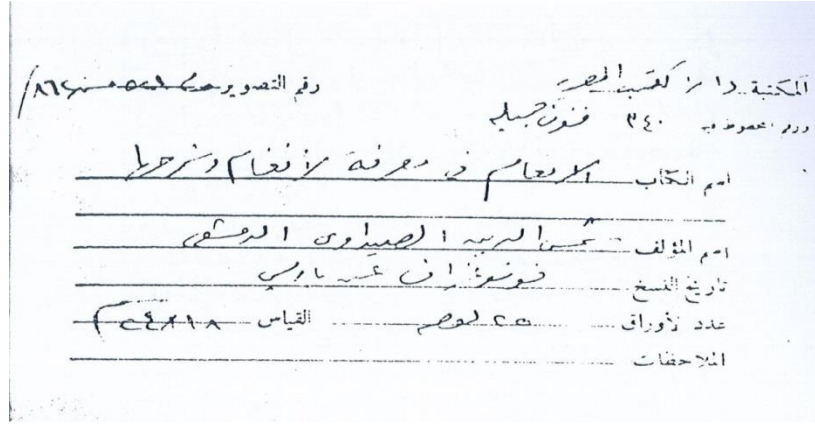 المكتبة دار الكتب المصرية رقم التصوير
ورقم المخطوط به ٣٤٠ فنون جميلة
اسم الكتاب الانعام فى معرفة الأنغام وشرحها
اسم المؤلف شمس الدين الصيداوى الدمشقى
تاريخ النسخ فوتوغراف عن باريس
عدد الأوراق ٢٥ لوحه القياس ١٨×٢٤ سم
الملاحظات